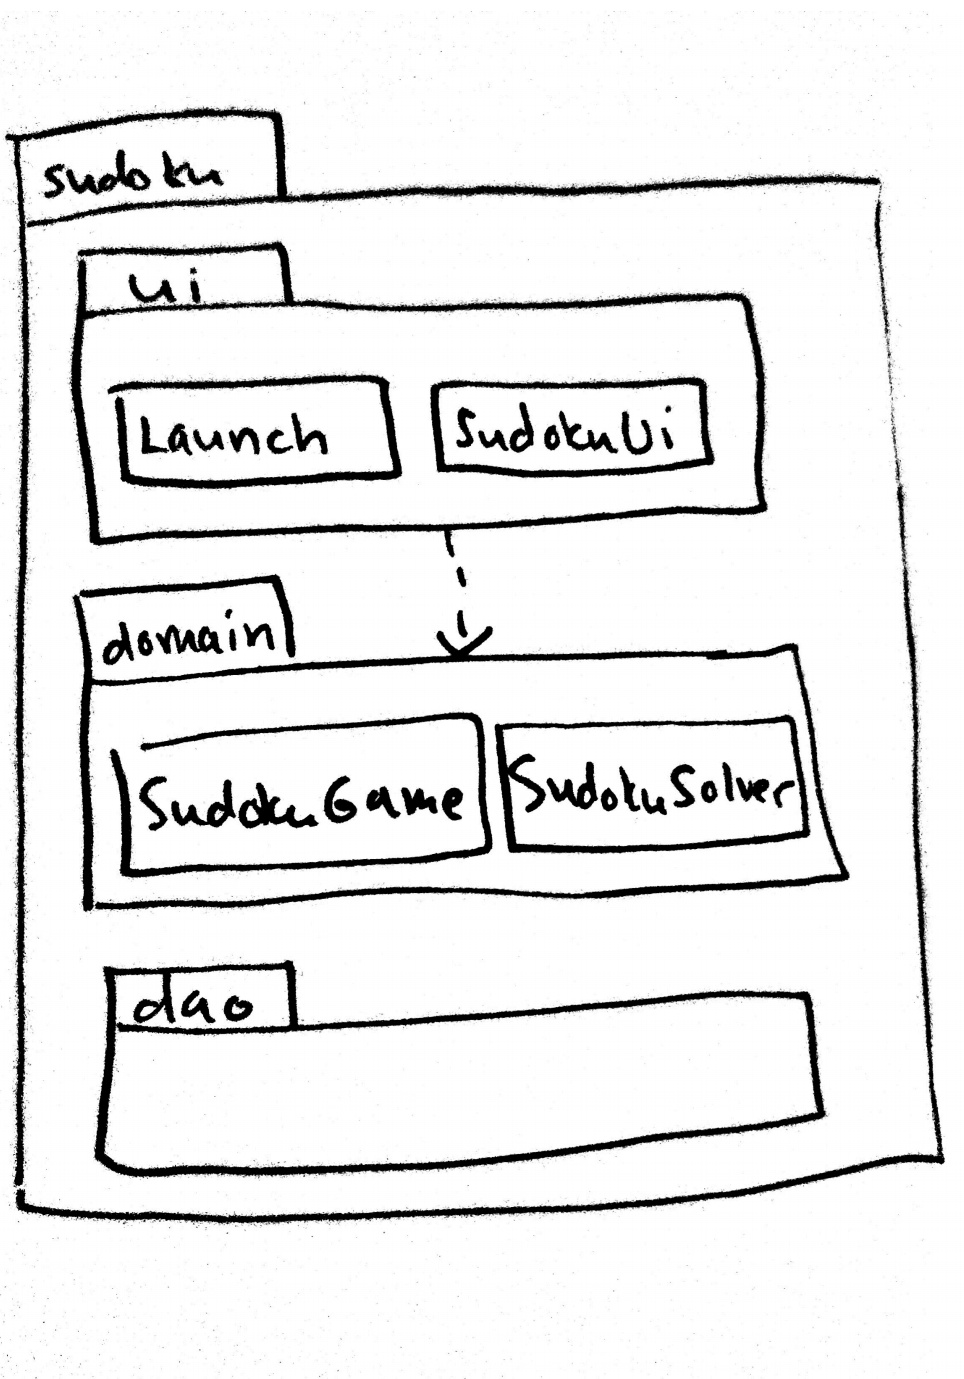 sudoku
ui
Launch
SudokuUi
domain
SudokuGame
SudokuSolver
dao